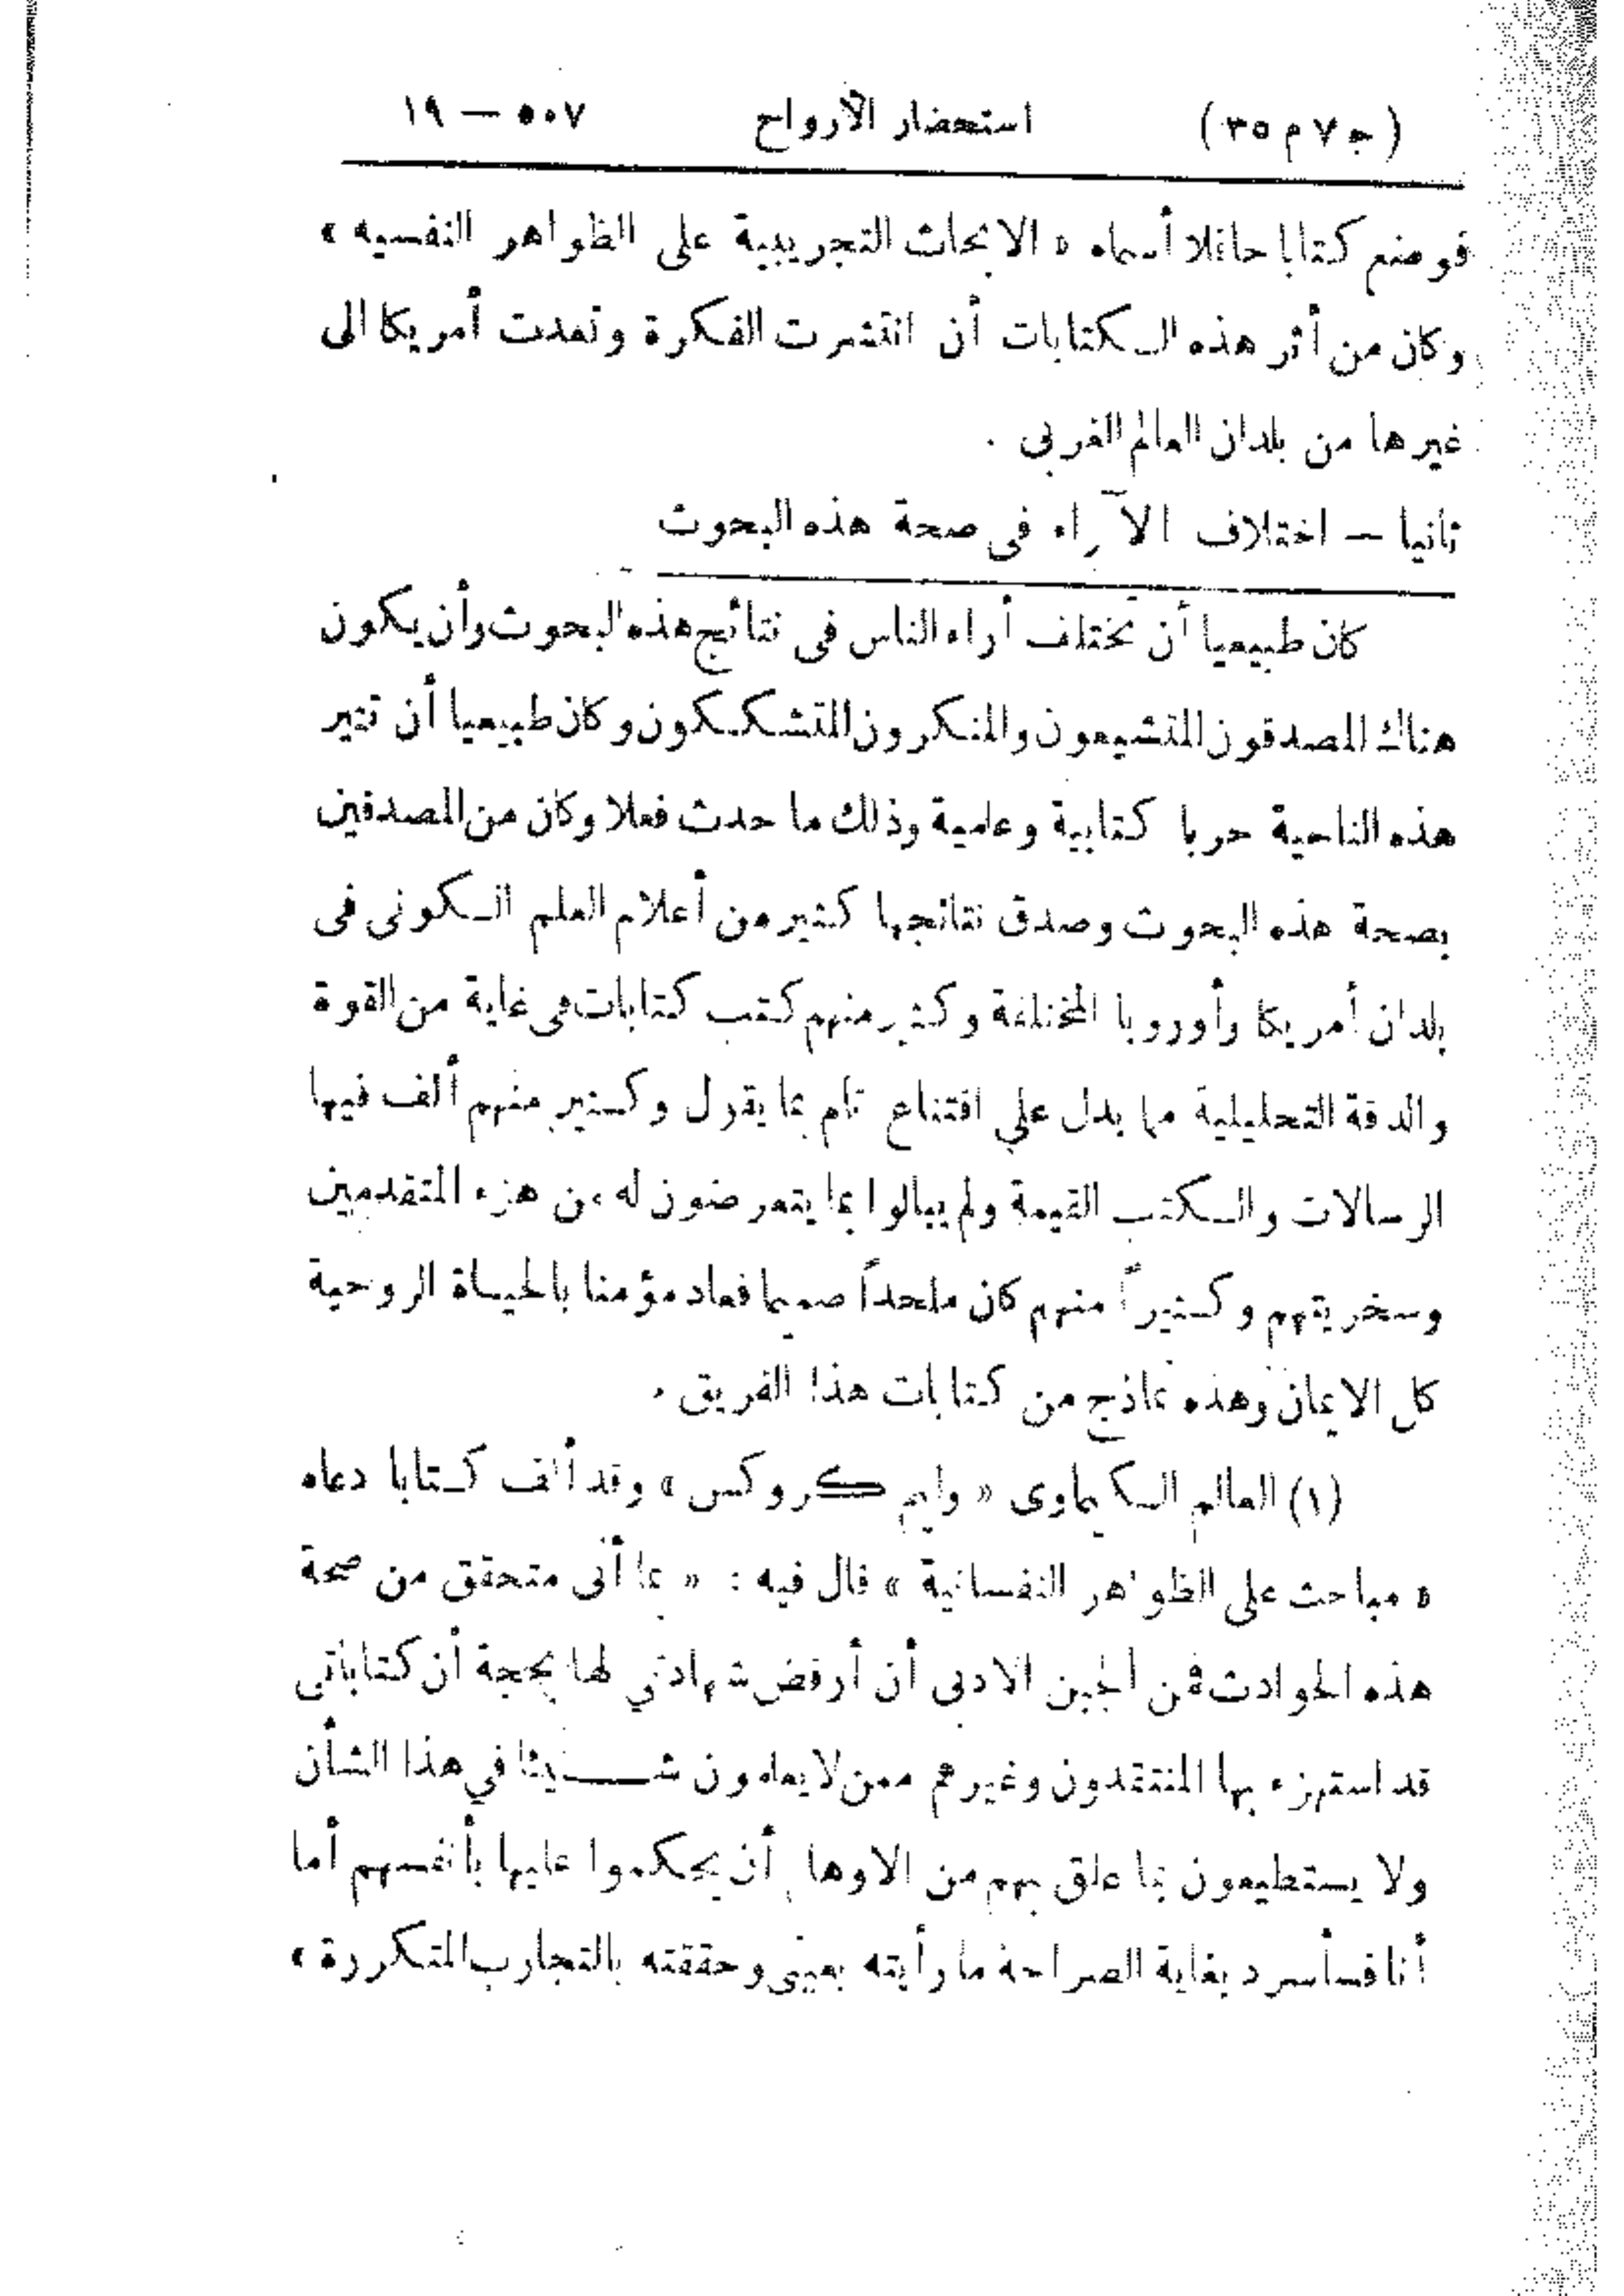 (ج ٧ م ٣٥) استحضار الأرواح ٥٠٧ — ١٩
فوضع كتابا حافلا أسماه « الابحاث التجريبية على الظواهر النفسيه »
وكان من أثر هذه الـكتابات أن انتشرت الفكرة وتعدت أمريكا الى
غيرها من بلدان العالم الغربى .
ثانيا — اختلاف الآراء فى صحة هذه البحوث
كان طبيعيا أن تختلف أراء الناس فى نتائج هذه البحوث وأن يكون
هناك المصدقون المتشيعون والمنكرون المتشككون وكان طبيعيا أن تثير
هذه الناحية حربا كتابية وعلمية وذلك ما حدث فعلا وكان من المصدقين
بصحة هذه البحوث وصدق نتائجها كثير من أعلام العلم الـكونى فى
بلدان أمريكا وأوروبا المختلفة وكثير منهم كتب كتابات هى غاية من القوة
والدقة التحليلية مما يدل علي اقتناع تام بما يقول وكثير منهم ألف فيها
الرسالات والـكتب القيمة ولم يبالوا بما يتعرضون له من هزء المتقدمين
وسخريتهم وكثيراً منهم كان ملحداً صميما فعاد مؤمنا بالحياة الروحية
كل الايمان وهذه نماذج من كتابات هذا الفريق .
(١) العالم الـكيماوى « وليم كروكس » وقد ألف كتابا دعاه
« مباحث على الظواهر النفسانية » قال فيه : « بما أنى متحقق من صحة
هذه الحوادث فمن الجبن الادبى أن أرفض شهادتي لها بحجة أن كتاباتى
قد استهزء بها المنتقدون وغيرهم ممن لا يعلمون شـــيئا في هذا الشأن
ولا يستطيعون بما علق بهم من الاوهام أن يحكموا عليها بأنفسهم أما
أنا فسأسرد بغاية الصراحة ما رأيته بعينى وحققته بالتجارب المتكررة »